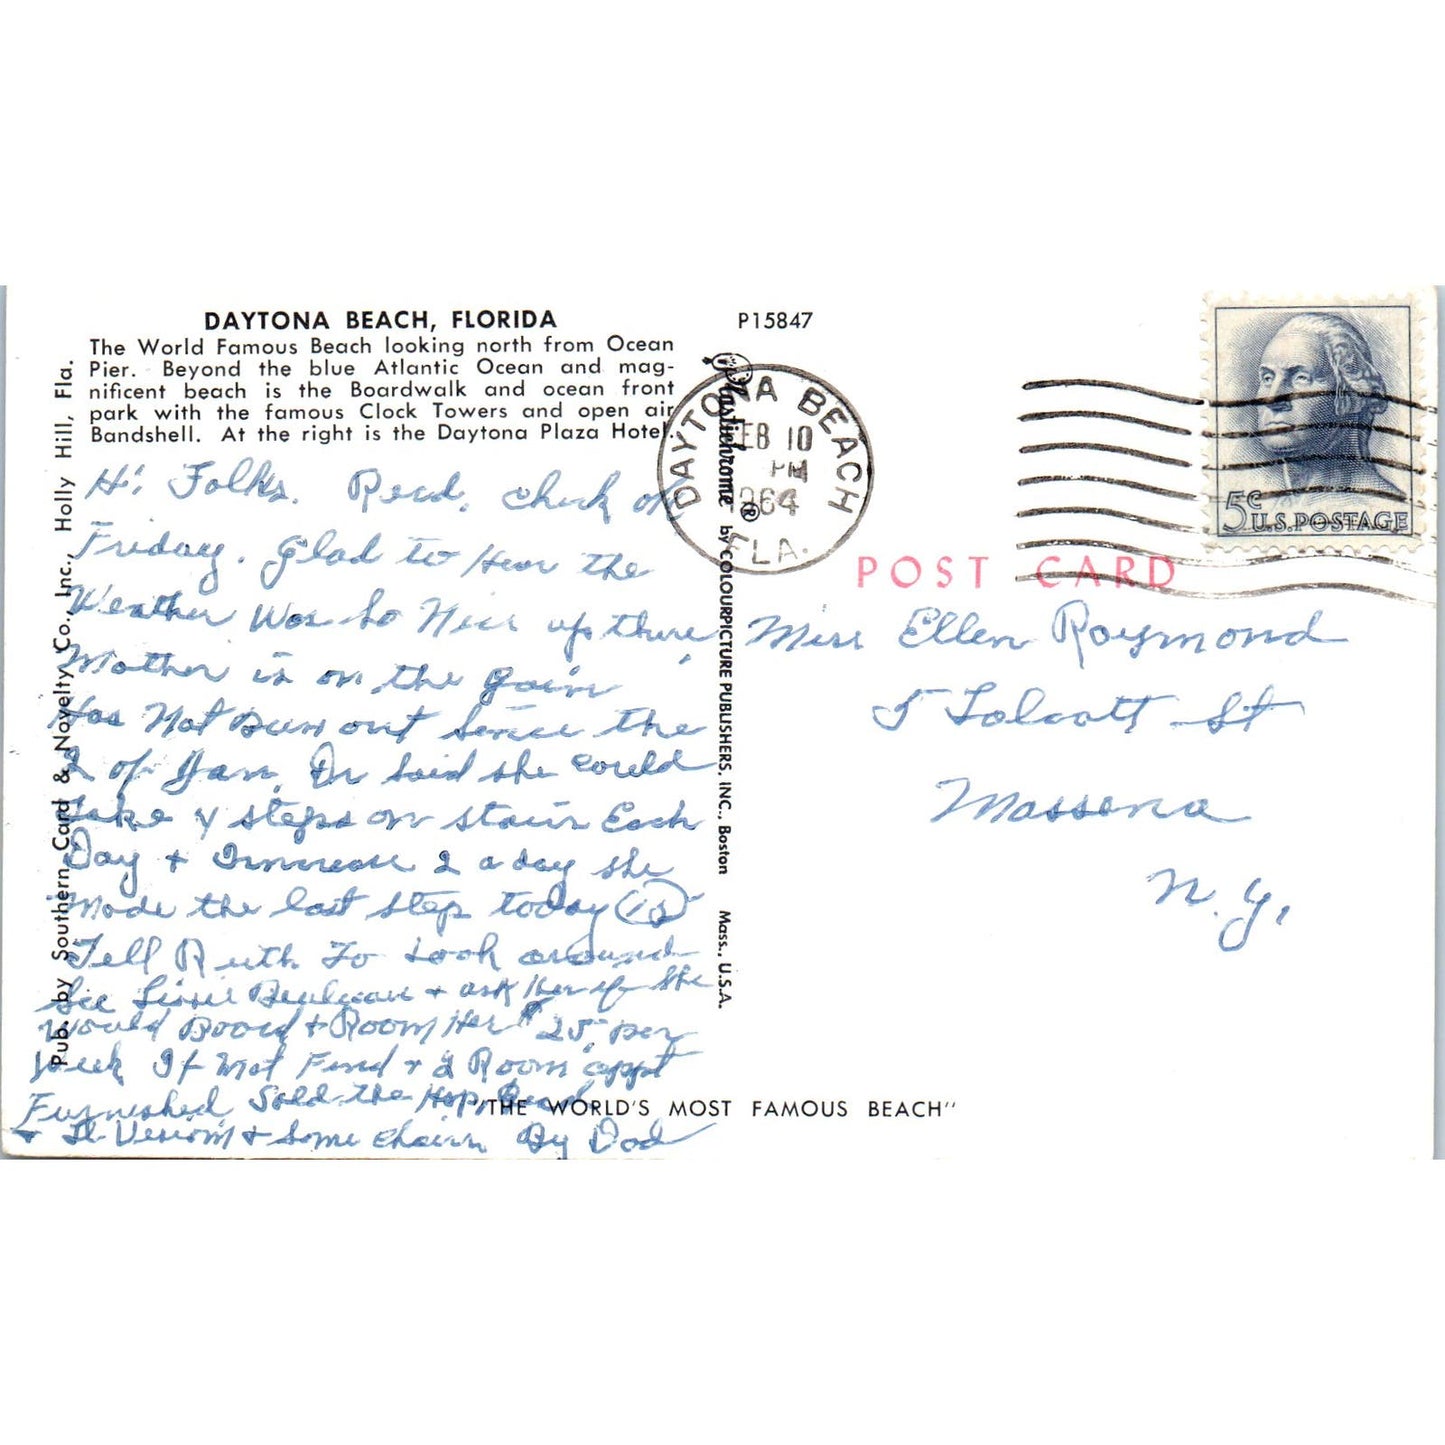 DAYTONA BEACH, FLORIDA
The World Famous Beach looking north from Ocean
Pier. Beyond the blue Atlantic Ocean and mag-
nificent beach is the Boardwalk and ocean front
park with the famous Clock Towers and open air
Bandshell. At the right is the Daytona Plaza Hotel.
P15847
Pub. by Southern Card & Novelty Co., Inc., Holly Hill, Fla.
Plastichrome ® by COLOURPICTURE PUBLISHERS, INC., Boston Mass., U.S.A.
DAYTONA BEACH
FEB 10
PM
1964
FLA.
5¢ U.S. POSTAGE
POST CARD
Hi Folks. Recd. check on
Friday. Glad to Hear the
Weather Was So Nice up there,
Mother is on the gain
Has Not Been out Since the
2 of Jan. Dr Said she could
Take 4 steps on stair Each
Day + 2 a day she
Made the last step today (15)
Tell Ruth To Look around
See + ask Her if She
Would Board + Room Her $25 per
Week If Not Find + 2 Room appt
Furnished Sold the Bed
+ + Some chairs By Dad
Miss Ellen Raymond
5 Talcott St
Massena
N.Y.
"THE WORLD'S MOST FAMOUS BEACH"